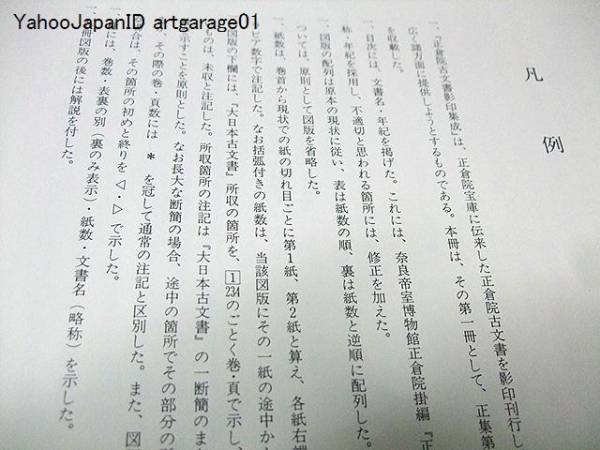 YahooJapanID artgarage01
凡例
一、『正倉院古文書影印集成』は、正倉院宝庫に伝来した正倉院古文書を影印刊行し
広く諸方面に提供しようとするものである。本冊は、その第一冊として、正集第
を収載した。
一、目次には、文書名・年紀を掲げた。これには、奈良帝室博物館正倉院掛編『正
称・年紀を採用し、不適切と思われる箇所には、修正を加えた。
一、図版の配列は原本の現状に従い、表は紙数の順、裏は紙数と逆順に配列した。
ついては、原則として図版を省略した。
一、紙数は、巻首から現状での紙の切れ目ごとに第1紙、第2紙と算え、各紙右端
ビア数字で注記した。なお括弧付きの紙数は、当該図版にその一紙の途中か
図版の下欄には、『大日本古文書』所収の箇所を、1 234のごとく巻・頁で示し、
ものは、未収と注記した。所収箇所の注記は『大日本古文書』の一断簡のま
示すことを原則とした。なお長大な断簡の場合、途中の箇所でその部分の
、その際の巻・頁数には * を冠して通常の注記と区別した。また、図
合は、その箇所の初めと終りを ◁・▷ で示した。
には、巻数・表裏の別（裏のみ表示）・紙数・文書名（略称）を示した。
冊図版の後には解説を付した。